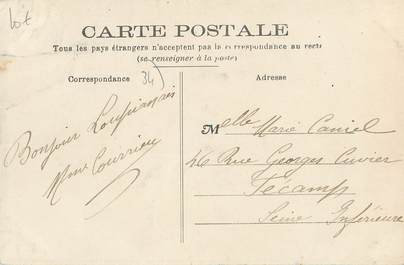 Lot
CARTE POSTALE
Tous les pays étrangers n'acceptent pas la correspondance au recto
(se renseigner à la poste)
Correspondance
34
Adresse
Bonjour
Melle Marie
46 Rue Georges Cuvier
Fécamp
Seine Inférieure